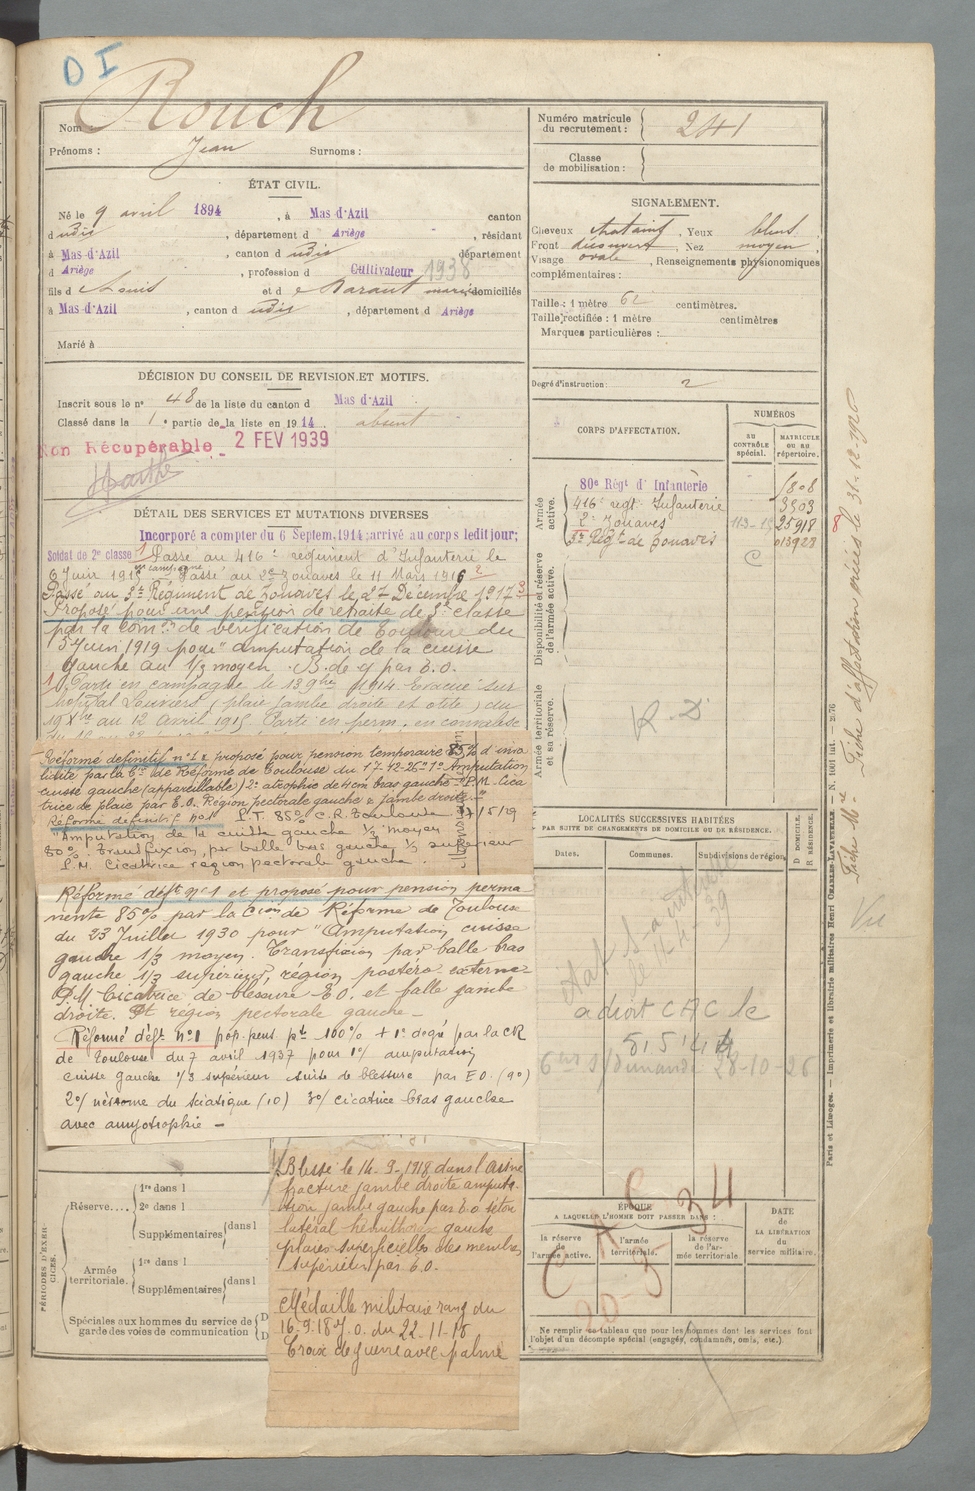 D I
Nom : Rouch
Prénoms : Jean Surnoms :
ÉTAT CIVIL.
Né le 9 avril 1894, à Mas-d'Azil canton
d udit, département d Ariège, résidant
à Mas-d'Azil, canton d udit département
d Ariège, profession d Cultivateur 1938
fils d e Louis et d e Baraut mariés domiciliés
à Mas-d'Azil, canton d udit, département d Ariège
Marié à
DÉCISION DU CONSEIL DE REVISION ET MOTIFS.
Inscrit sous le no 48 de la liste du canton d Mas-d'Azil
Classé dans la 1e partie de la liste en 1914 absent
Non Récupérable 2 FEV 1939
DÉTAIL DES SERVICES ET MUTATIONS DIVERSES
Incorporé a compter du 6 Septem. 1914; arrivé au corps ledit jour;
Soldat de 2e classe Passé au 416e régiment d'Infanterie le
6 Juin 1915 en campagne Passé au 2e Zouaves le 11 Mars 1916
Passé au 3e Régiment de Zouaves le 27 Décembre 1917
Proposé pour une pension de retraite de 3e classe
par la Comon de vérification de Toulouse du
5 Juin 1919 pour "amputation de la cuisse
gauche au 1/3 moyen. B. de g par E.O.
Parti en campagne le 13 9bre 1914 Evacué sur
hopital Louviers (plaie jambe droite et otite) du
19 Xbre au 12 avril 1915 Parti en perm. en convalesc
Réformé définitif no 1 et proposé pour pension temporaire 85% d'inva
lidité par la Con de Réforme de Toulouse du 17-12-26 1° Amputation
cuisse gauche (appareillable) 2° atrophie de 4 cm bras gauche P.M. Cica
trice de plaie par E.O. Région pectorale gauche & jambe droite
Réformé définitif no 1 P.T. 85% C.R. Toulouse 15/29
"Amputation de la cuisse gauche 1/3 moyen
80%. Transfixion, par balle bras gauche, 1/3 supérieur
P.M. Cicatrice région pectorale gauche.
Réformé déft no 1 et proposé pour pension perma
nente 85% par la Cion de Réforme de Toulouse
du 23 Juillet 1930 pour "Amputation cuisse
gauche 1/3 moyen. Transfixion par balle bras
gauche 1/3 supérieur, région postéro externe
P.M. Cicatrice de blessure E.O. et balle jambe
droite. Et région pectorale gauche
Réformé déft no 1 pop. pens pte 100% + 1e degré par la CR
de Toulouse du 7 avril 1937 pour 1°/ amputation
cuisse gauche 1/3 supérieur suite de blessure par E.O. (90)
2°/ névrome du sciatique (10) 3°/ cicatrice bras gauche
avec amyotrophie
Blessé le 14-9-1918 dans l'Aisne
fracture jambe droite amputa-
tion jambe gauche par E.O. séton
latéral hémithorax gauche
plaies superficielles des membres
supérieurs par E.O.
Médaille militaire rang du
16.9.18 J.O. du 22-11-18
Croix de guerre avec palme
PÉRIODES D'EXER-
CICES.
Réserve.... 1re dans l
2e dans l
Supplémentaires dans l
Armée
territoriale. 1re dans l
Supplémentaires dans l
Spéciales aux hommes du service de
garde des voies de communication D
D
Numéro matricule
du recrutement : 241
Classe
de mobilisation :
SIGNALEMENT.
Cheveux chatains, Yeux bleus
Front découvert, Nez moyen
Visage ovale, Renseignements physionomiques
complémentaires :
Taille : 1 mètre 62 centimètres.
Taille rectifiée : 1 mètre centimètres
Marques particulières :
Degré d'instruction : 2
CORPS D'AFFECTATION.
NUMÉROS
AU
CONTRÔLE
spécial.
MATRICULE
OU AU
RÉPERTOIRE.
Armée
active.
80e Régt d'Infanterie 1808
416e régt Infanterie 3503
2e Zouaves 25918
3e Régt de Zouaves 013928
Disponibilité et réserve
de l'armée active.
C
Armée territoriale
et sa réserve.
R.D.
LOCALITÉS SUCCESSIVES HABITÉES
PAR SUITE DE CHANGEMENTS DE DOMICILE OU DE RÉSIDENCE.
Dates. Communes. Subdivisions de région.
D DOMICILE.
R RÉSIDENCE.
a droit CAC le
28-10-26
C A C 34
ÉPOQUE
A LAQUELLE L'HOMME DOIT PASSER DANS :
la réserve
de
l'armée active.
l'armée
territoriale.
la réserve
de l'ar-
mée territoriale.
DATE
de
LA LIBÉRATION
du
service militaire.
Ne remplir ce tableau que pour les hommes dont les services font
l'objet d'un décompte spécial (engagés, condamnés, omis, etc.).
Paris et Limoges. — Imprimerie et librairie militaires Henri CHARLES-LAVAUZELLE.
Fiche d'affectation créées le 31-12-1920
Vu